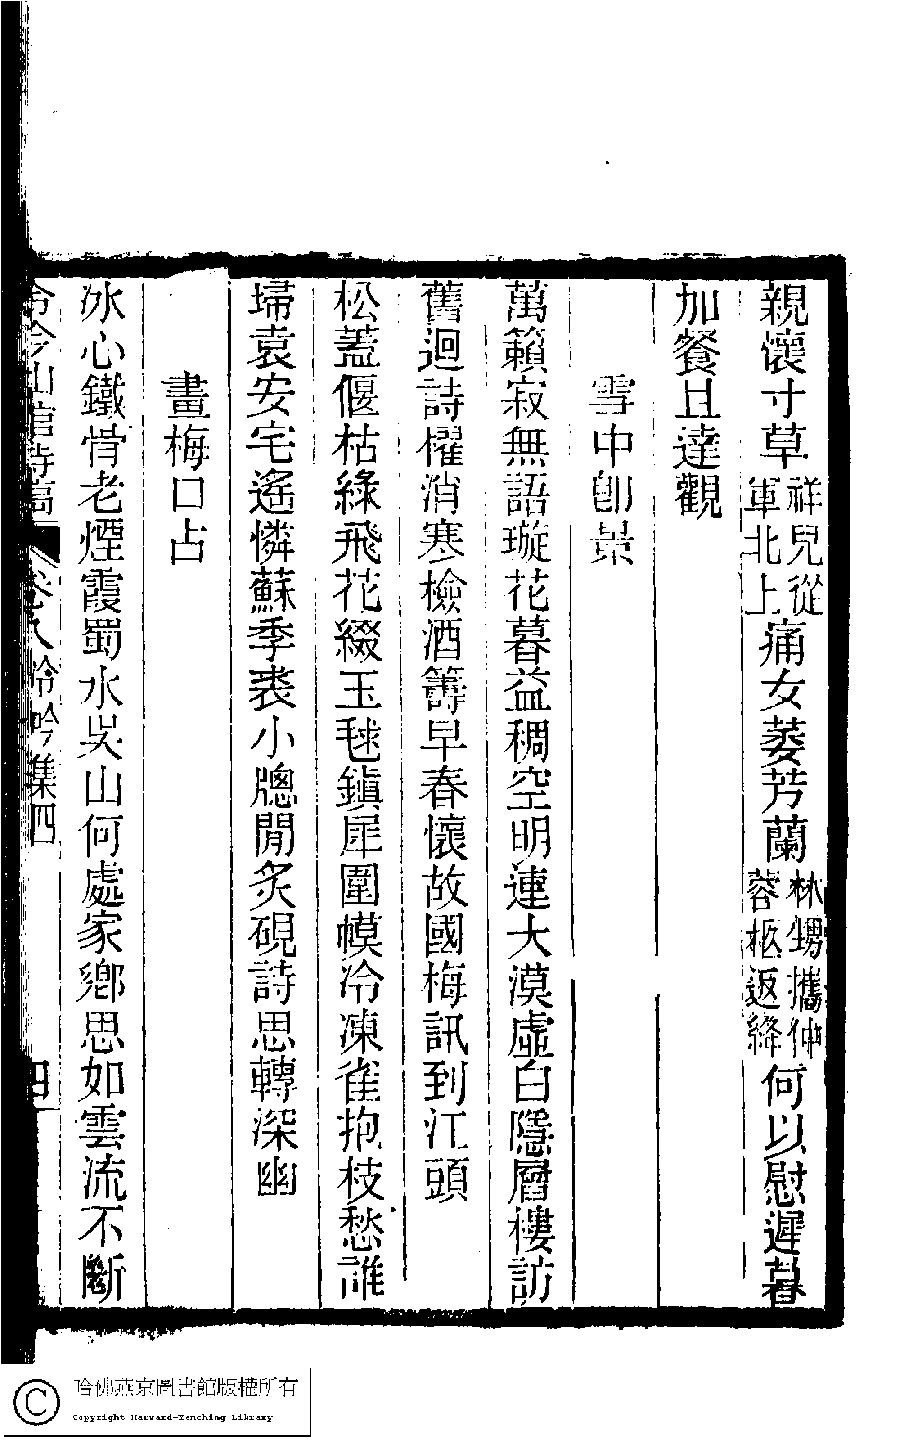 親懷寸草祥兒從軍北上痛女萎芳蘭林甥攜仲蓉柩返絳何以慰遲暮
加餐且達觀
雪中卽景
萬籟寂無語璇花暮益稠空明連大漠虛白隱層樓訪
舊迴詩懼消寒檢酒籌早春懷故國梅訊到江頭
松蓋偃枯綠飛花綴玉毬鎮犀圍幙冷凍雀抱枝愁誰
埽袁安宅遙憐蘇季裘小牕閒炙硯詩思轉深幽
畫梅口占
冰心鐵骨老煙霞蜀水吳山何處家鄉思如雲流不斷
冷吟山館詩高 卷八 冷吟集四 四
哈佛燕京圖書館版權所有
Copyright Harvard-Yenching Library